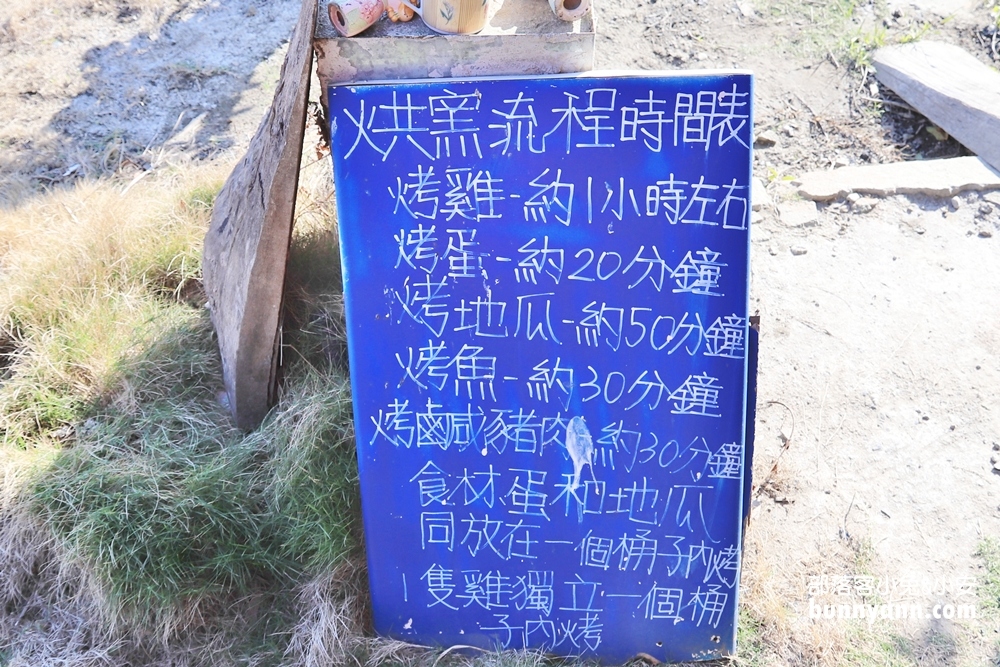 烘窯流程時間表
烤雞-約1小時左右
烤蛋-約20分鐘
烤地瓜-約50分鐘
烤魚-約30分鐘
烤鹹豬肉 約30分鐘
食材蛋和地瓜
同放在一個桶子內烤
1隻雞獨立一個桶
子內烤
bunnyann.com